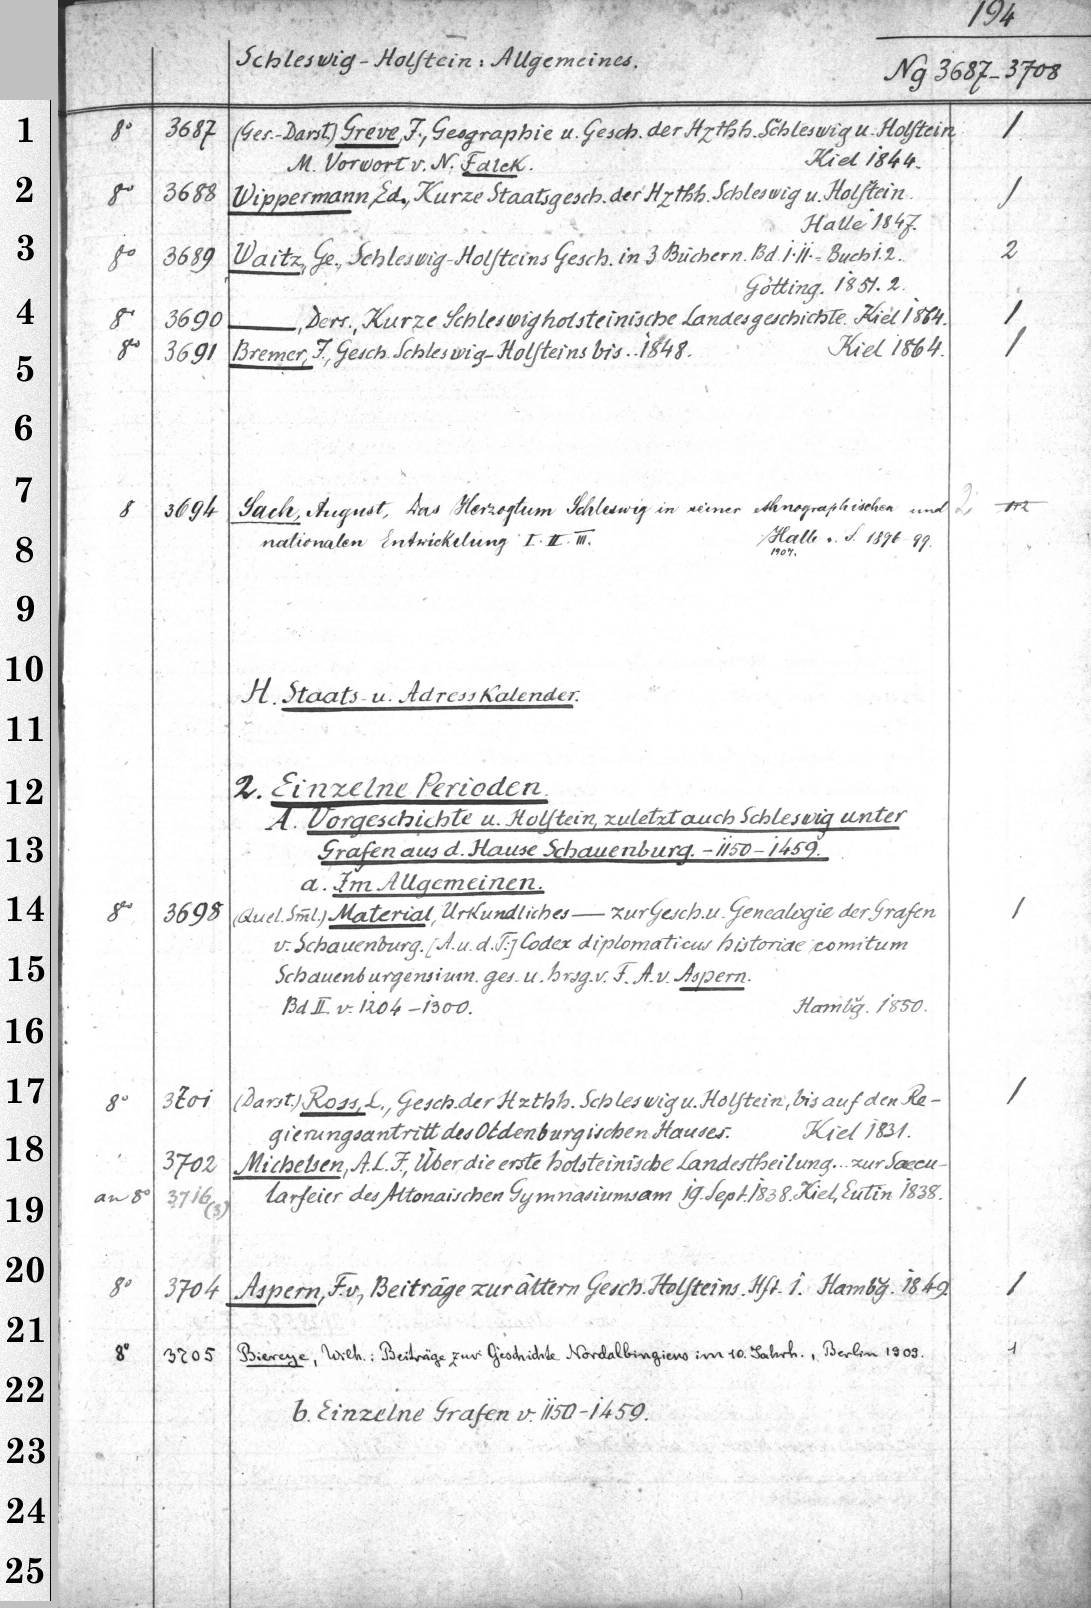 194
Schleswig-Holstein: Allgemeines.
Ng 3687-3708
1 8° 3687 (Ges.-Darst.) Greve, F., Geographie u. Gesch. der Hzthh. Schleswig u. Holstein 1
M. Vorwort v. N. Falck. Kiel 1844.
2 8° 3688 Wippermann, Ed., Kurze Staatsgesch. der Hzthh. Schleswig u. Holstein. 1
Halle 1847.
3 8° 3689 Waitz, Ge., Schleswig-Holsteins Gesch. in 3 Büchern. Bd. I. II. = Buch 1. 2. 2
Götting. 1851. 2.
4 8° 3690 ———, Ders., Kurze Schleswigholsteinische Landesgeschichte. Kiel 1864. 1
5 8° 3691 Bremer, J., Gesch. Schleswig-Holsteins bis .. 1848. Kiel 1864. 1
6
7 8 3694 Sach, August, Das Herzogtum Schleswig in seiner ethnographischen und 2
8 nationalen Entwickelung I. II. III. Halle a. S. 1896-99.
1907.
9
10 H. Staats- u. Adresskalender.
11
12 2. Einzelne Perioden.
A. Vorgeschichte u. Holstein, zuletzt auch Schleswig unter
13 Grafen aus d. Hause Schauenburg. -1150-1459.
a. Im Allgemeinen.
14 8° 3698 (Quel. Sml.) Material, Urkundliches — zur Gesch. u. Genealogie der Grafen 1
v. Schauenburg. [A. u. d. T.:] Codex diplomaticus historiae comitum
15 Schauenburgensium. ges. u. hrsg. v. F. A. v. Aspern.
Bd II. v. 1204-1300. Hambg. 1850.
16
17 8° 3701 (Darst.) Ross, L., Gesch. der Hzthh. Schleswig u. Holstein, bis auf den Re- 1
18 gierungsantritt des Oldenburgischen Hauses. Kiel 1831.
3702 Michelsen, A. L. J., Über die erste holsteinische Landestheilung... zur Saecu-
19 an 8° 3716(3) larfeier des Altonaischen Gymnasiums am 19. Sept. 1838. Kiel, Eutin 1838.
20 8° 3704 Aspern, F. v., Beiträge zur ältern Gesch. Holsteins. Hft. 1. Hambg. 1849 1
21 8° 3705 Biereye, Wilh.: Beiträge zur Geschichte Nordalbingiens im 10. Jahrh., Berlin 1909. 1
22 b. Einzelne Grafen v. 1150-1459.
23
24
25